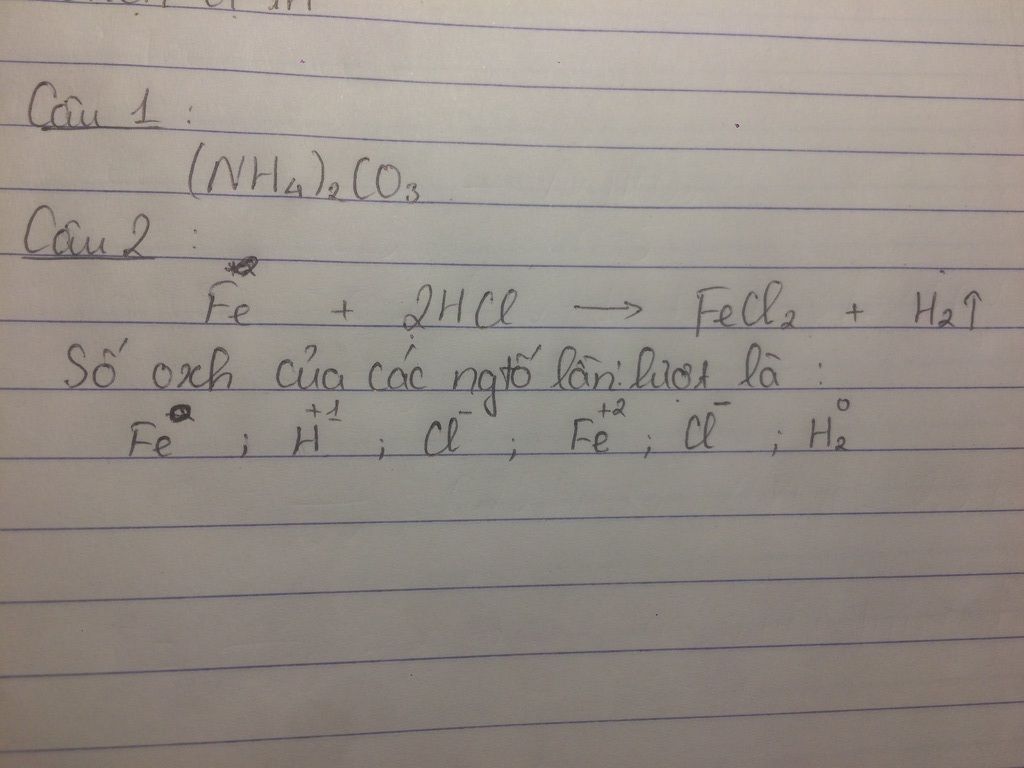 Câu 1 :
(NH₄)₂CO₃
Câu 2 :
Fe + 2HCl → FeCl₂ + H₂↑
Số oxh của các ngtố lần lượt là :
Fe ; H⁺¹ ; Cl⁻ ; Fe⁺² ; Cl⁻ ; H₂⁰